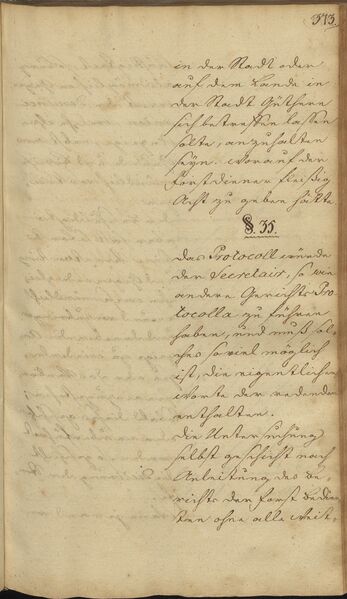 373.
in der Stadt oder
auf dem Lande in
der Stadt Güthern
sich betreffen lassen
solte, anzuhalten
seyn. Worauf der
Forstdiener fleißig
Acht zu geben hätte
§. 35.
Das Protocoll würde
der Secretair, so wie
andere Gerichts Pro-
tocolla zu führen
haben, und muß sol-
ches soviel möglich
ist, die eigentlichen
Worte der redenden
enthalten.
Die Untersuchung
selbst geschieht nach
Anleitung des Be-
richts der Forst Bedie-
ten ohne alle Weit,